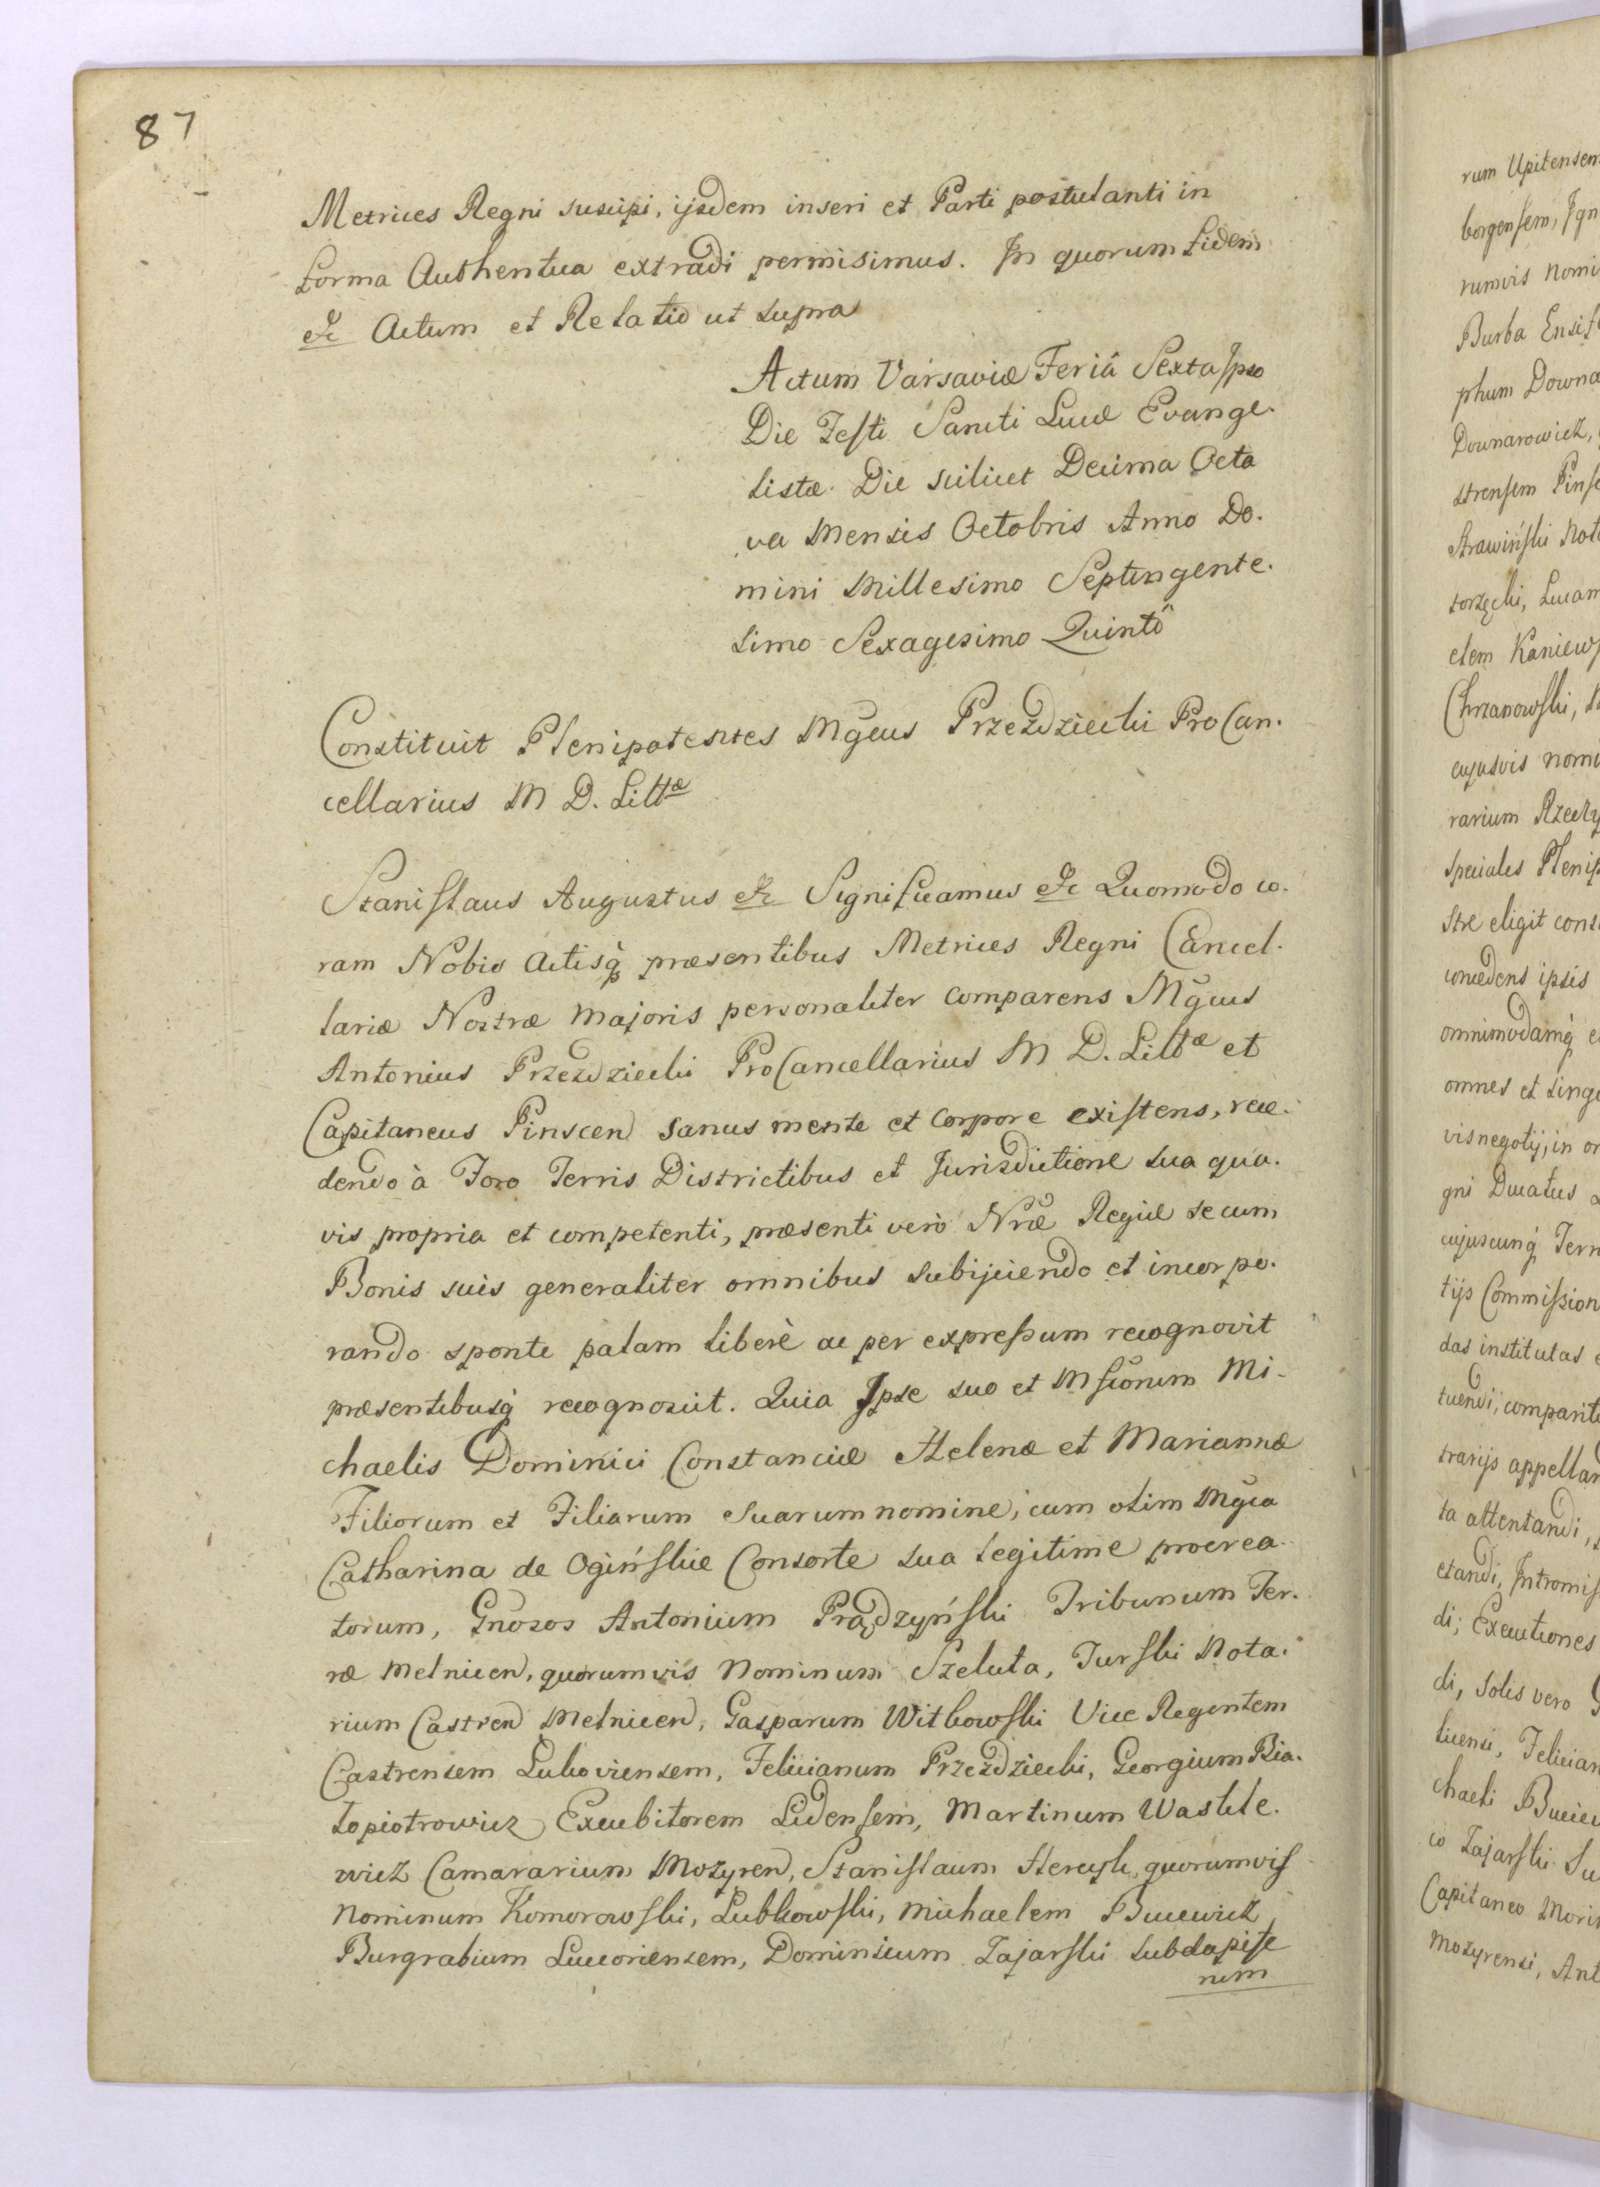 87
Metrices Regni suscipi, ijsdem inseri et Parti postulanti in
forma Authentica extradi permisimus. In quorum fidem
etc Actum et Relatio ut supra
Actum Varsaviæ Feriâ Sexta Ipso
Die Festi Sancti Lucæ Evange-
listæ. Die scilicet Decima Octa
va Mensis Octobris Anno Do-
mini Millesimo Septingente-
simo Sexagesimo Quintô
Constituit Plenipotentes Mgcus Przezdziecki ProCan-
cellarius M D. Littæ
Stanislaus Augustus etc Significamus etc Quomodo co-
ram Nobis Actisq̀ præsentibus Metrices Regni Cancel-
lariæ Nostræ Majoris personaliter comparens Mgcus
Antonius Przezdziecki ProCancellarius M D. Littæ et
Capitaneus Pinscen sanus mente et corpore existens, rece-
dendo à Foro Terris Districtibus et Jurisdictione sua qua-
vis propria et competenti, præsenti verò Nræ Regiæ se cum
Bonis suis generaliter omnibus subijciendo et incorpo-
rando sponte palam liberè ac per expressum recognovit
præsentibusq̀ recognoscit. Quia Ipse suo et Mscorum Mi-
chaelis Dominici Constanciæ Helenæ et Mariannæ
Filiorum et Filiarum suarum nomine, cum olim Mgca
Catharina de Ogińskie Consorte sua legitime procrea-
torum, Gnosos Antonium Prądzyński Tribunum Ter-
ræ Melnicen, quorumvis Nominum Szeluta, Turski Nota-
rium Castren Melnicen, Gasparum Witkowski Vice Regentem
Castrensem Lukoviensem, Felicianum Przezdziecki, Georgium Bia-
łopiotrowicz Excubitorem Lidensem, Martinum Wasile-
wicz Camararium Mozyren, Stanislaum Hercyk, quorumvis
Nominum Komorowski, Lubkowski, Michaelem Bucewicz
Burgrabium Luceoriensem, Dominicum Zajarski Subdapife
rum
rum Upitensem
borgensem, Ign
rumvis nomi
Burba Ensif
phum Downa
Downarowicz,
strensem Pins
Strawiński Not
torzecki, Lucam
elem Kaniew
Chrzanowski,
cujusvis nomi
rarium Rzeczy
speciales Plenip
stre eligit const
concedens ipsis
omnimodamq̀
omnes et singu
vis negotij, in
gni Ducatus
cujuscunq̀ Terr
tijs Commission
das institutas
tuendi, comparit
trarijs appellan
ta attentandi,
ctandi, Intromis
di; Executiones
di, solis vero
licensi, Felician
chaeli Bucie
co Zajarski Su
Capitaneo
Mozyrensi, Ant